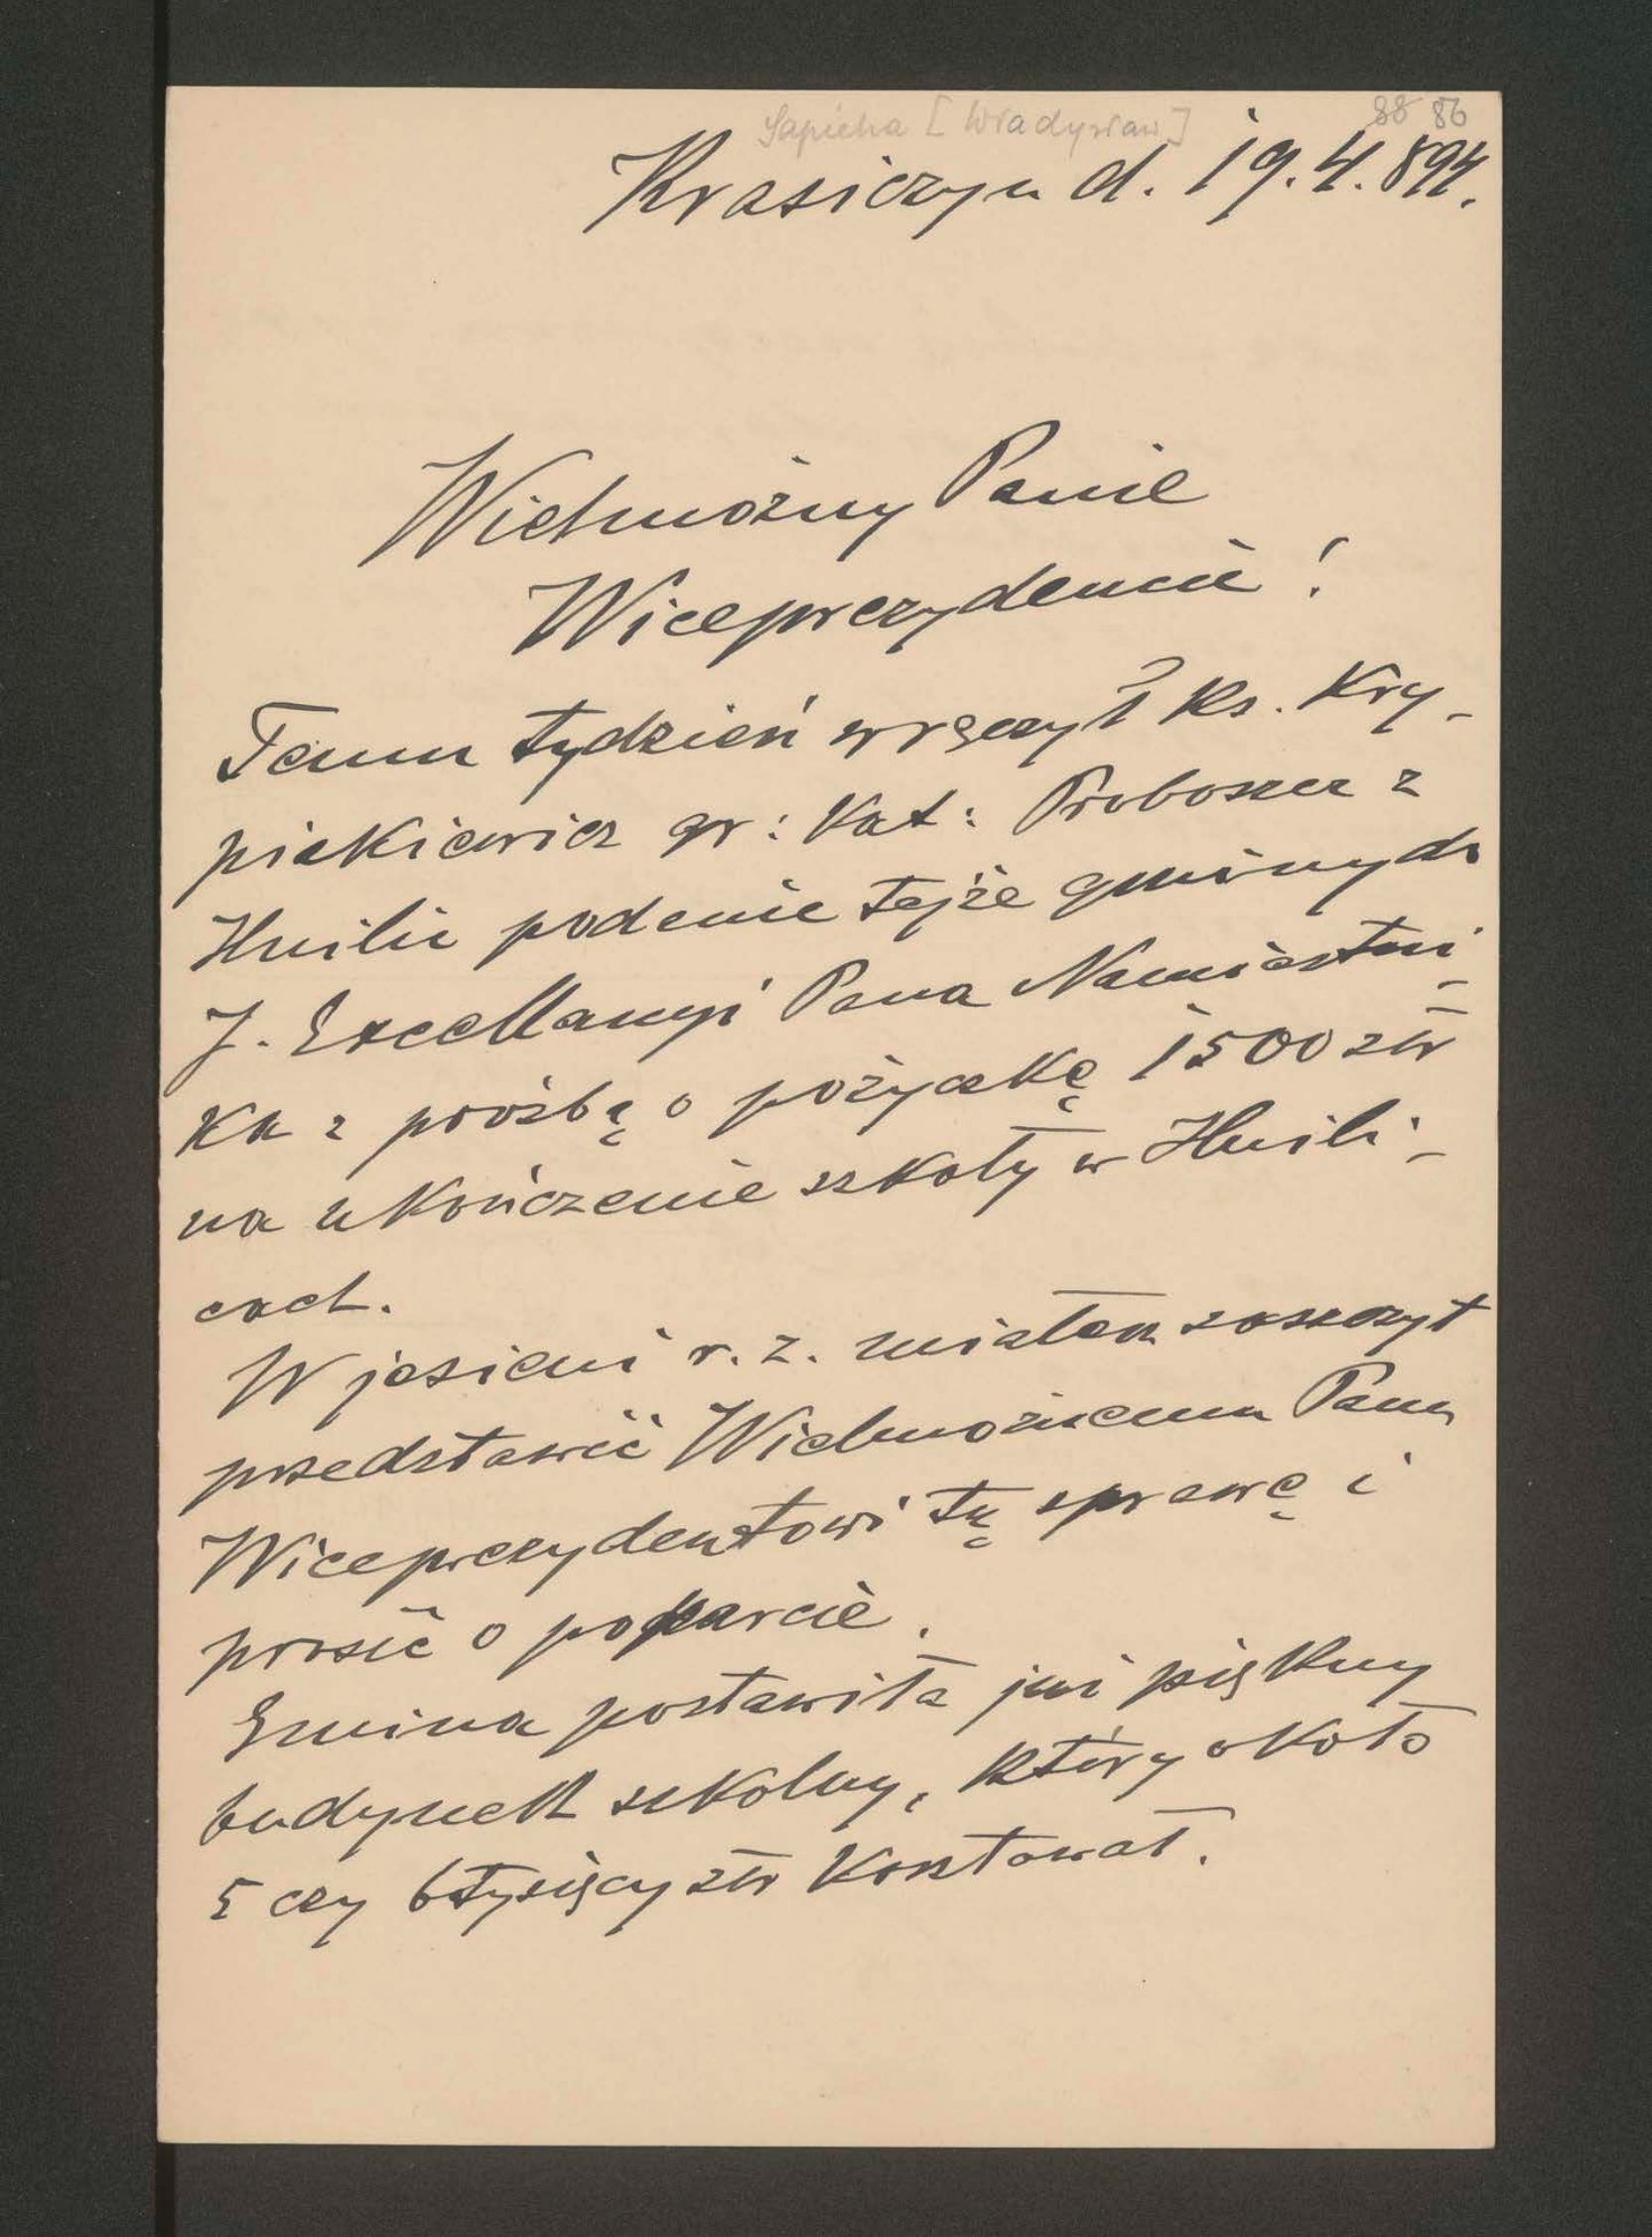 Sapieha [Władysław] 88 86
Krasiczyn d. 19.4.894.
Wielmożny Panie
Wiceprezydencie!
Temu tydzień wręczył Ks. Kry-
piakiewicz gr: kat: Proboszcz z
Hnilic podanie tejże gminy do
J. Excellencyi Pana Namiestni-
ka z prośbą o pożyczkę 1500 złr
na ukończenie szkoły w Hnili-
cach.
W jesieni r. z. miałem zaszczyt
przedstawić Wielmożnemu Panu
Wiceprezydentowi tę sprawę i
prosić o poparcie.
Gmina postawiła już piękny
budynek szkolny, który około
5 czy 6 tysięcy złr kosztował.